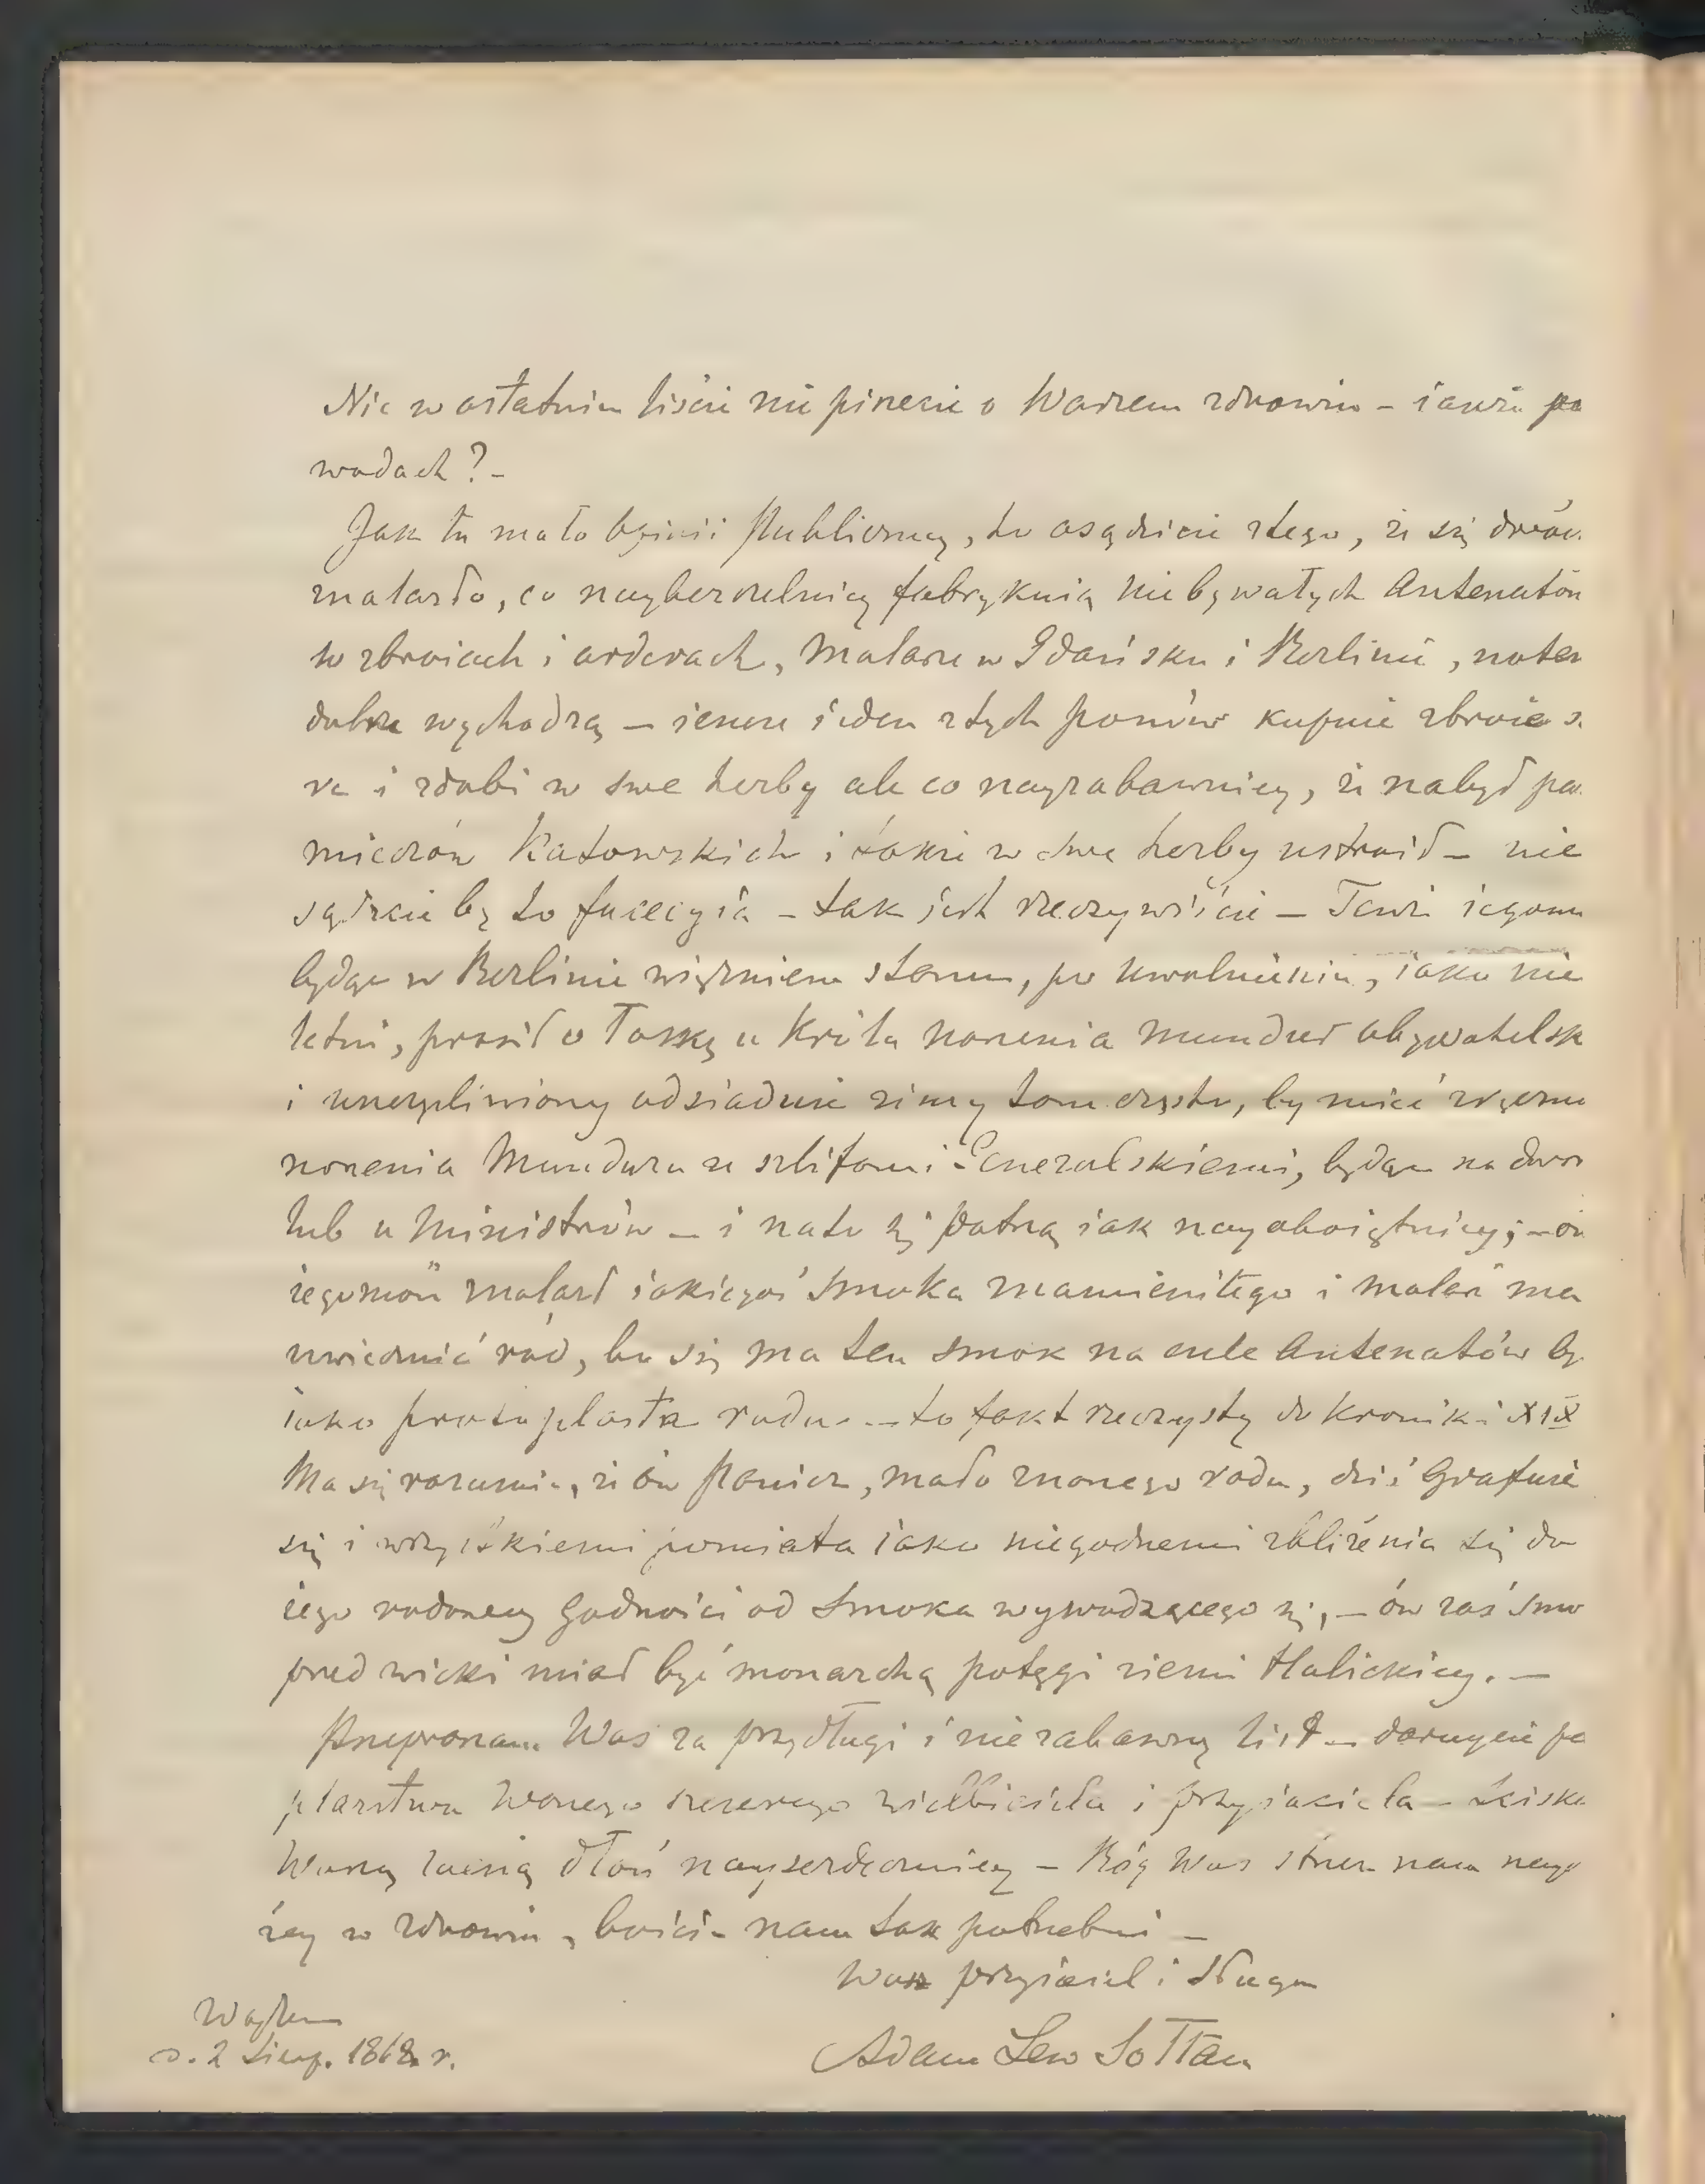 Nic w ostatnim liście nie piszecie o Waszem zdrowiu – iakże po
wodach? –
Jak tu mało opinii Publiczney, to osądzicie ztego, że się
malarzo, co naybezczelniey fabrykuią niebywałych Antenatów
w zbroiach i orderach, Malarze w Gdańsku i Berlinie, na tem
dobrze wychodzą – ieszcze ieden ztych panów kupuie zbroie s
re i zdobi w swe herby ale co nayzabawniey, że nabył pa
mieczów Katowskich i takie w swe herby ustroił – nie
sądźcie by to facecyia – tak iest rzeczywiście – Tenże iegom
będąc w Berlinie więźniem stanu, po uwolnieniu, iako nie
letni, prosił o łaskę u Króla noszenia mundur obywatelsk
i uszczęśliwiony odsiaduie zimy tam często, by mieć
noszenia Munduru ze szlifami Generalskiemi, będąc na dwor
lub u Ministrów – i na to się patrzą iak nayoboiętniey; – ów
iegomość malarz iakiegoś Smoka znamienitego i malarz ma
uwiecznić ród, bo się ma ten smok na czele Antenatów by
iako protoplasta rodu – to fakt rzeczysty do kroniki XIX
Ma się rozumie, że ów Panicz, mało znanego rodu, dziś Grafuie
się i wszystkiemi pomiata iako niegodnemi zbliżenia się do
iego rodowey godności od Smoka wywodzącego się, – ów zaś smo
przed wieki miał być monarchą potęgi ziemi Halickiey. –
Przepraszam Was za przydługi i niezabawny list – daruycie pa
plarstwu Waszego szczerego wielbiciela i przyiaciela – Ściska
Waszą zacną dłoń nayserdeczniey – Bóg Was strzeż nam nayd
żey w zdrowiu, boście nam tak potrzebni –
Wasz przyiaciel i Sługa
Adam Lew Sołtan
d. 2 Sierp. 1868 r.